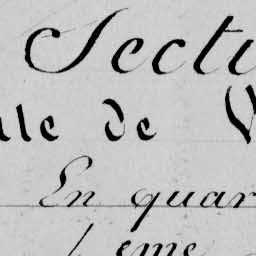 Secti
lle de V
En quar
4 eme